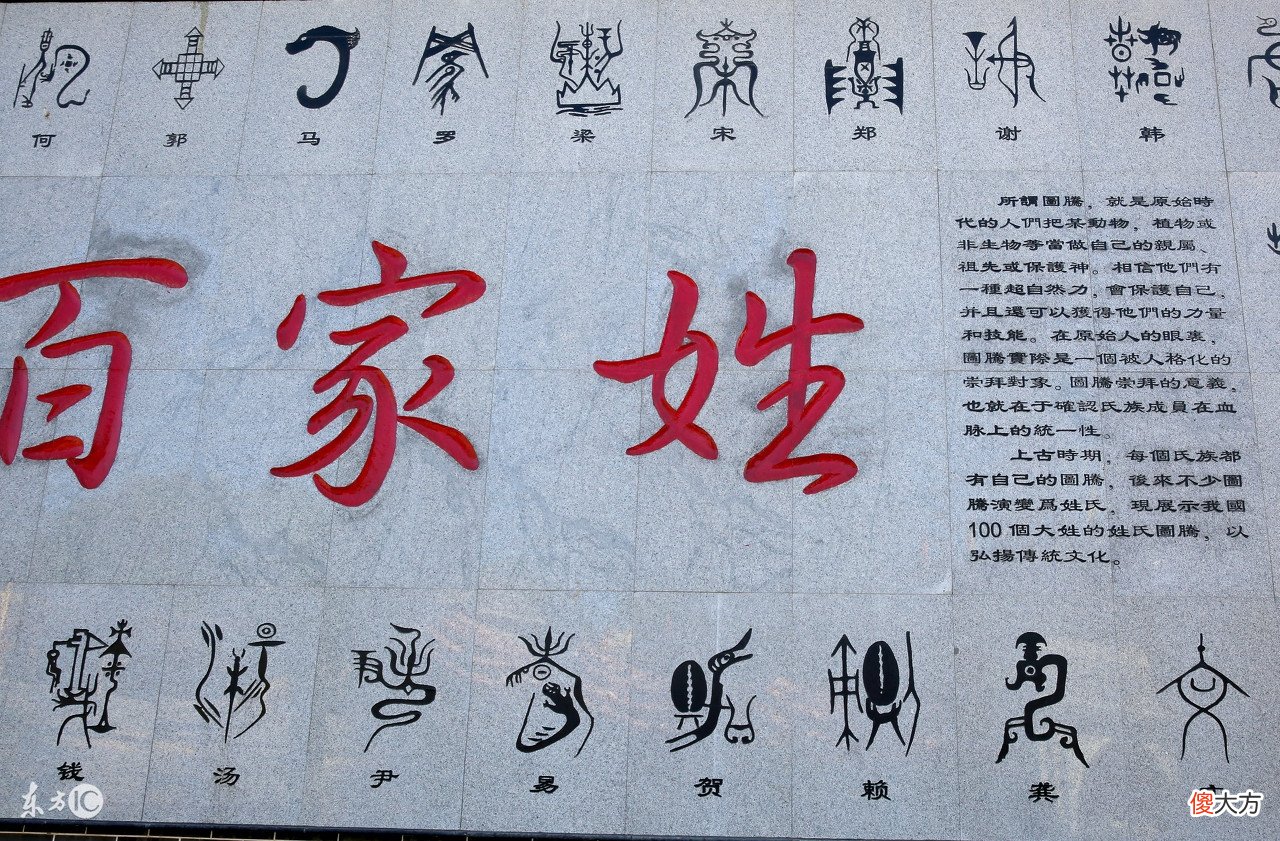 何 郭 马 罗 梁 宋 郑 谢 韩
百家姓
所謂圖騰，就是原始時
代的人們把某動物，植物或
非生物等當做自己的親屬、
祖先或保護神。相信他們有
一種超自然力，會保護自己，
并且還可以獲得他們的力量
和技能。在原始人的眼裏，
圖騰實際是一個被人格化的
崇拜對象。圖騰崇拜的意義，
也就在于確認氏族成員在血
脉上的統一性。
上古時期，每個氏族都
有自己的圖騰，後來不少圖
騰演變爲姓氏，現展示我國
100個大姓的姓氏圖騰，以
弘揚傳統文化。
钱 汤 尹 易 贺 赖 龚
东方IC
傻大方